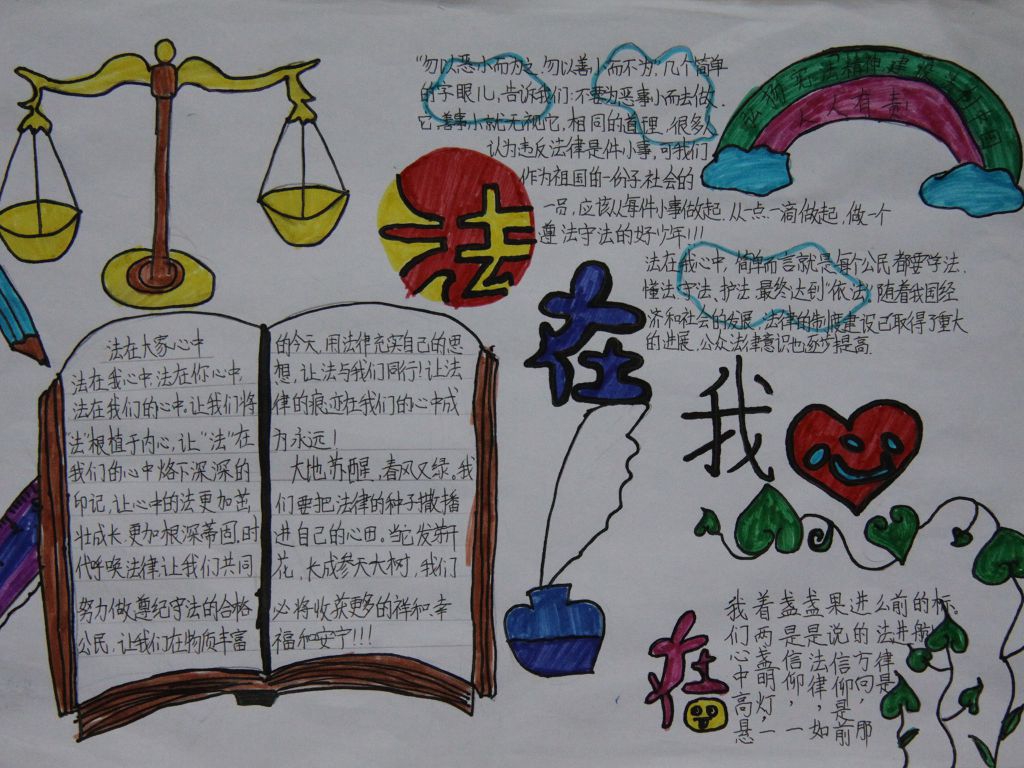 弘扬宪法精神 建设法制中国
人人有责
"勿以恶小而为之,勿以善小而不为",几个简单
的字眼儿,告诉我们:不要为恶事小而去做,
它善事小就无视它,相同的道理,很多
认为违反法律是件小事,可我们
作为祖国的一份子,社会的
一员,应该从每件小事做起,从一点一滴做起,做一个
遵法守法的好少年!!!
法
在
我
在
法在我心中,简单而言就是每个公民都要学法、
懂法、守法、护法,最终达到"依法",随着我国经
济和社会的发展,法律的制度建设已取得了重大
的进展,公众法律意识也逐步提高。
法在大家心中
法在我心中,法在你心中,
法在我们的心中,让我们将
"法"根植于内心,让"法"在
我们的心中烙下深深的
印记,让心中的法更加茁
壮成长,更加根深蒂固,时
代呼唤法律,让我们共同
努力做遵纪守法的合格
公民,让我们在物质丰富
的今天,用法律充实自己的思
想,让法与我们同行!让法
律的痕迹在我们的心中成
为永远!
大地苏醒,春风又绿。我
们要把法律的种子撒播
进自己的心田。当它发芽开
花,长成参天大树,我们
必将收获更多的祥和、幸
福和安宁!!!
我们心中高悬
着两盏明灯,一
盏是信仰,一
盏是法律,如
果说信仰是前
进的方向,那
么法律是
前进
的航
标。